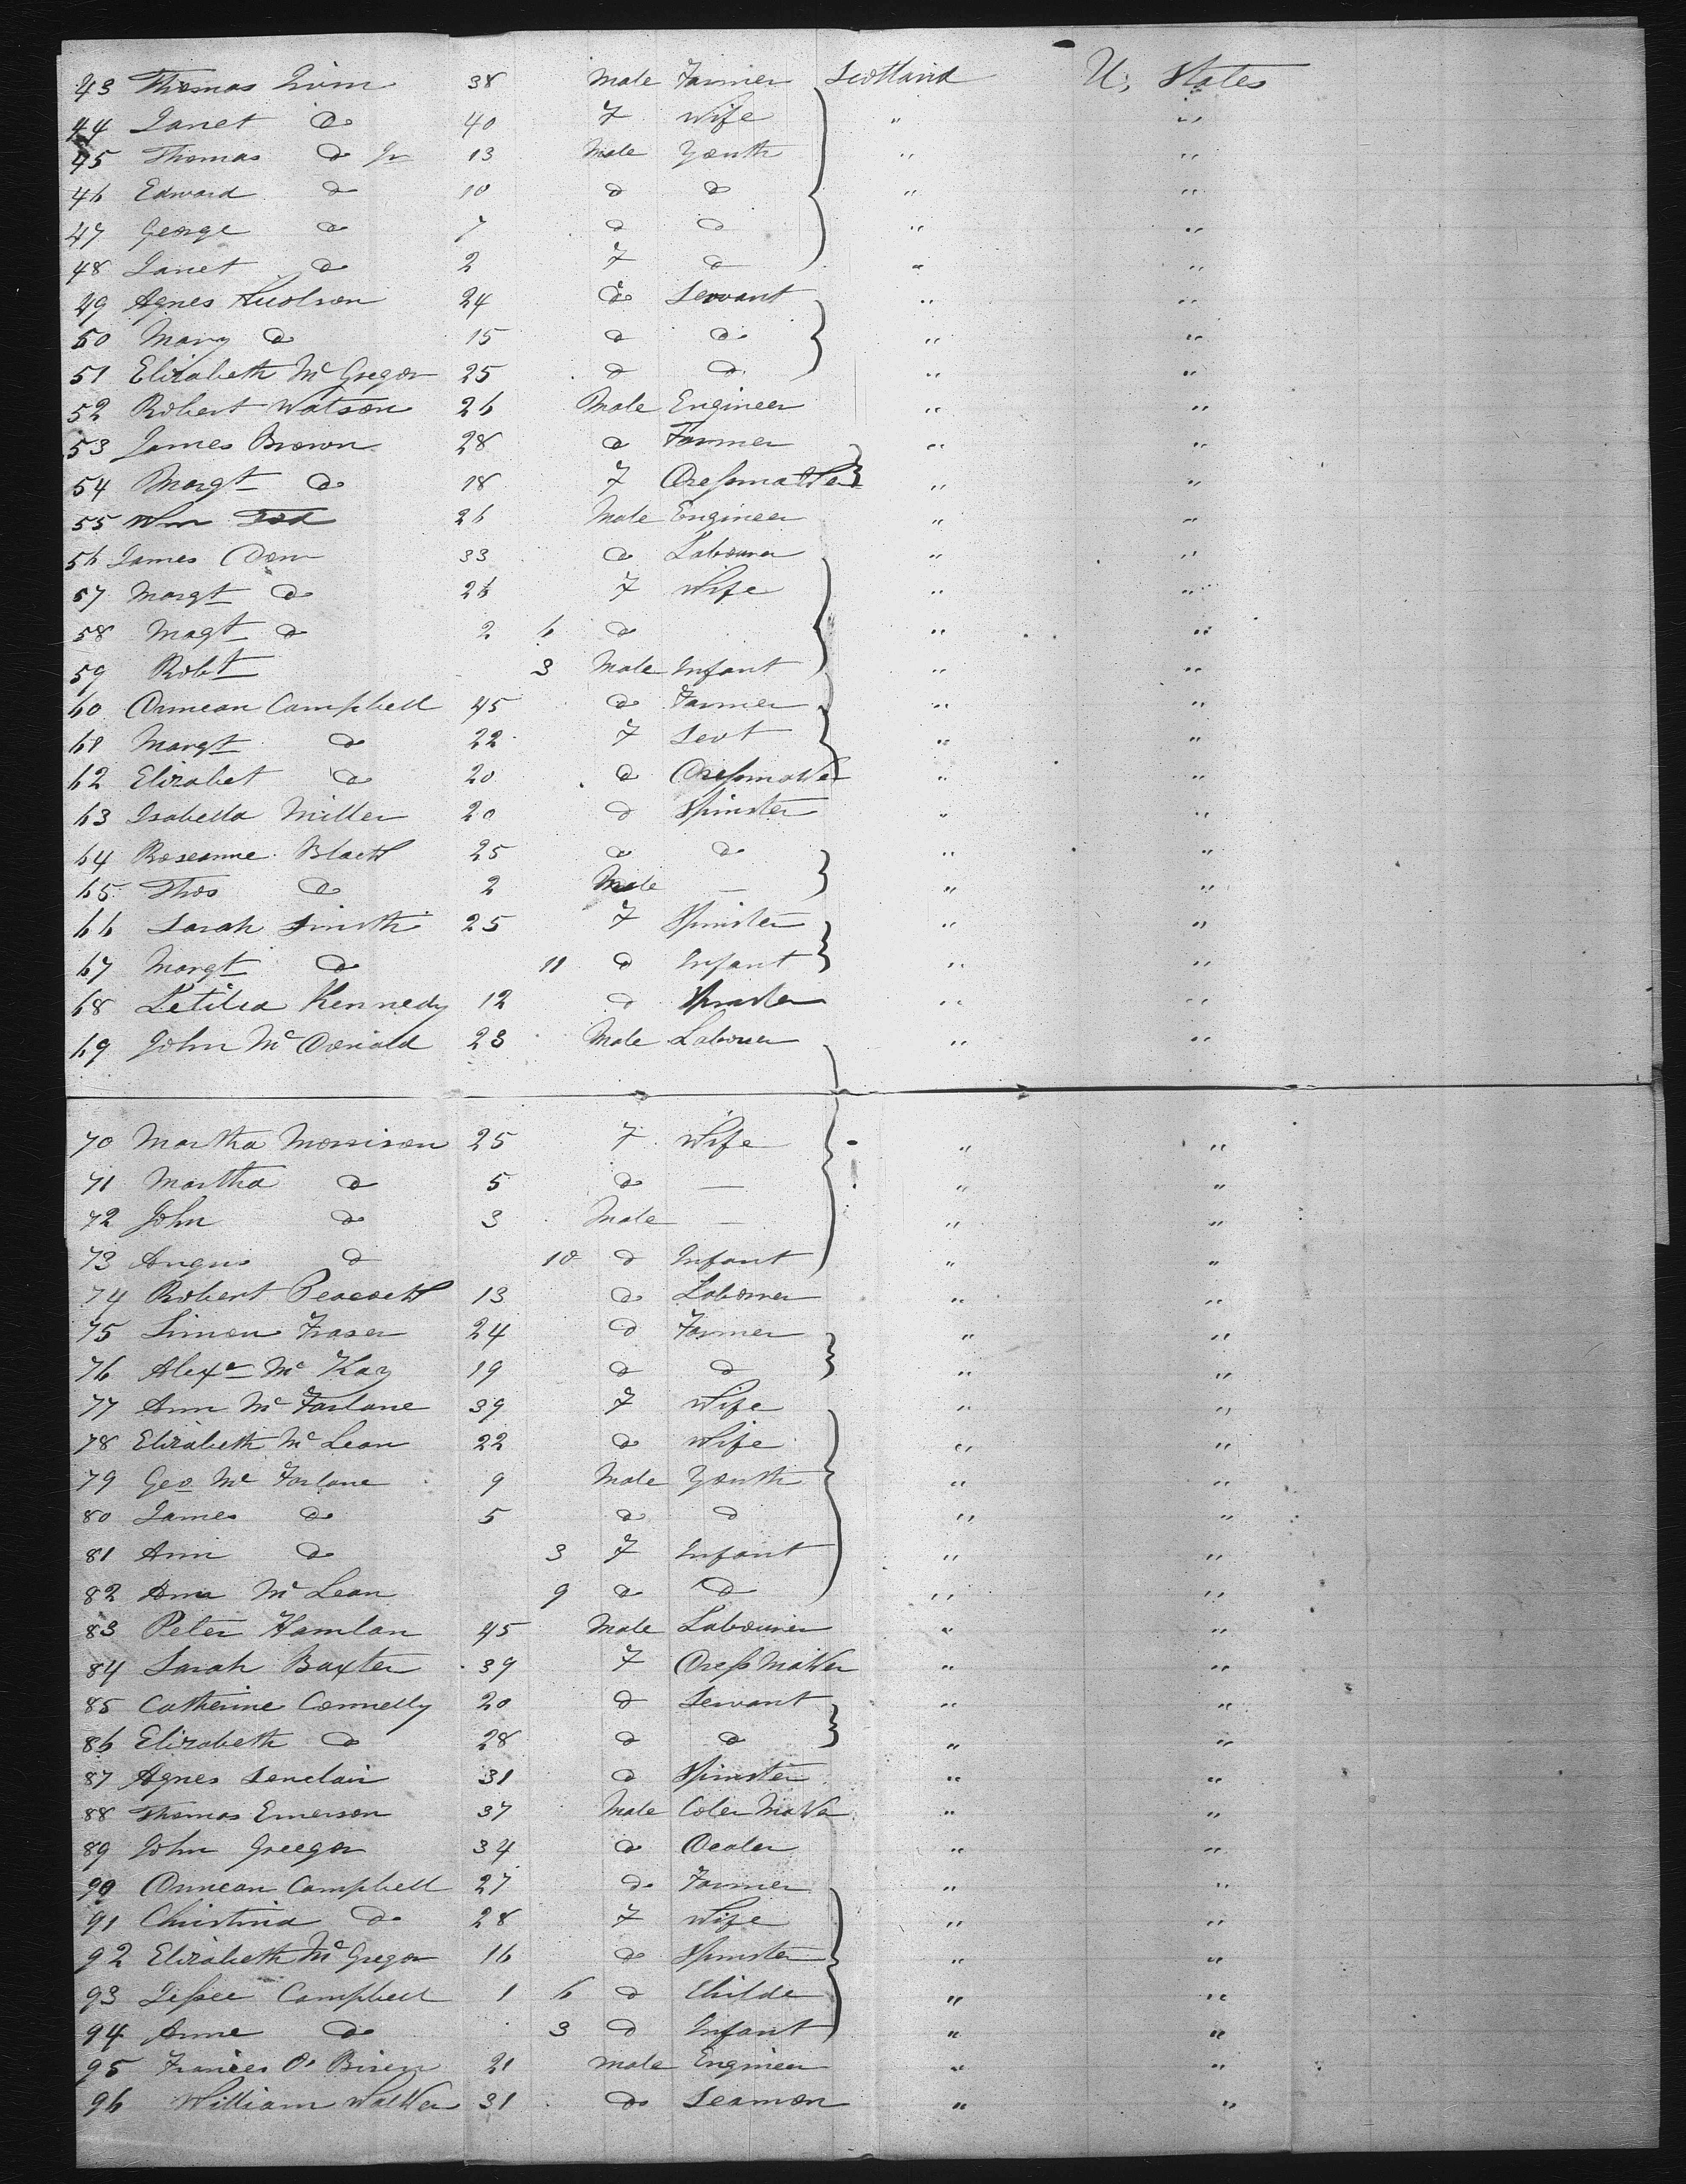 43 Thomas 38 Male Farmer Scotland U, States
44 Janet Do 40 F Wife " "
45 Thomas Do Jr 13 Male Youth " "
46 Edward Do 10 Do Do " "
47 George Do 7 Do Do " "
48 Janet Do 2 F Do " "
49 Agnes 24 Do Servant " "
50 Mary Do 15 Do Do " "
51 Elizabeth Mc Gregor 25 Do Do " "
52 Robert Watson 26 Male Engineer " "
53 James Brown 28 Do Farmer " "
54 Margt Do 18 F Dressmaker " "
55 Wm Tod 26 Male Engineer " "
56 James 33 Do Labourer " "
57 Margt Do 26 F Wife " "
58 Magt Do 2 6 Do " "
59 Robt 3 Male Infant " "
60 Duncan Campbell 45 Do Farmer " "
61 Margt Do 22 F Sevt " "
62 Elizabet Do 20 Do Dressmaker " "
63 Isabella Miller 20 Do Spinster " "
64 Roseanne Black 25 Do Do " "
65 Thos Do 2 Male — " "
66 Sarah Smith 25 F Spinster " "
67 Margt Do 11 Do Infant " "
68 Letitia Kennedy 12 Do Spinster " "
69 John Mc Donald 23 Male Labourer " "
70 Martha Morrison 25 F Wife " "
71 Martha Do 5 Do — " "
72 John Do 3 Male — " "
73 Angus Do 10 Do Infant " "
74 Robert Peacock 13 Do Labourer " "
75 Simon Fraser 24 Do Farmer " "
76 Alexr Mc Kay 19 Do Do " "
77 Ann Mc Farlane 39 F Wife " "
78 Elizabeth Mc Lean 22 Do Wife " "
79 Geo Mc Farlane 9 Male Youth " "
80 James Do 5 Do Do " "
81 Ann Do 3 F Infant " "
82 Ann Mc Lean 9 Do Do " "
83 Peter Hamlan 45 Male Labourer " "
84 Sarah Baxter 39 F Dress Maker " "
85 Catherine Connelly 20 Do Servant " "
86 Elizabeth Do 28 Do Do " "
87 Agnes Senclair 31 Do Spinster " "
88 Thomas Emerson 37 Male Maker " "
89 John Greegor 34 Do Dealer " "
90 Duncan Campbell 27 Do Farmer " "
91 Christina Do 28 F Wife " "
92 Elizabeth Mc Gregor 16 Do Spinster " "
93 Jessee Campbell 1 6 Do Childe " "
94 Anne Do 3 Do Infant " "
95 Frances O' 21 Male Engineer " "
96 William Walker 31 Do Seamon " "